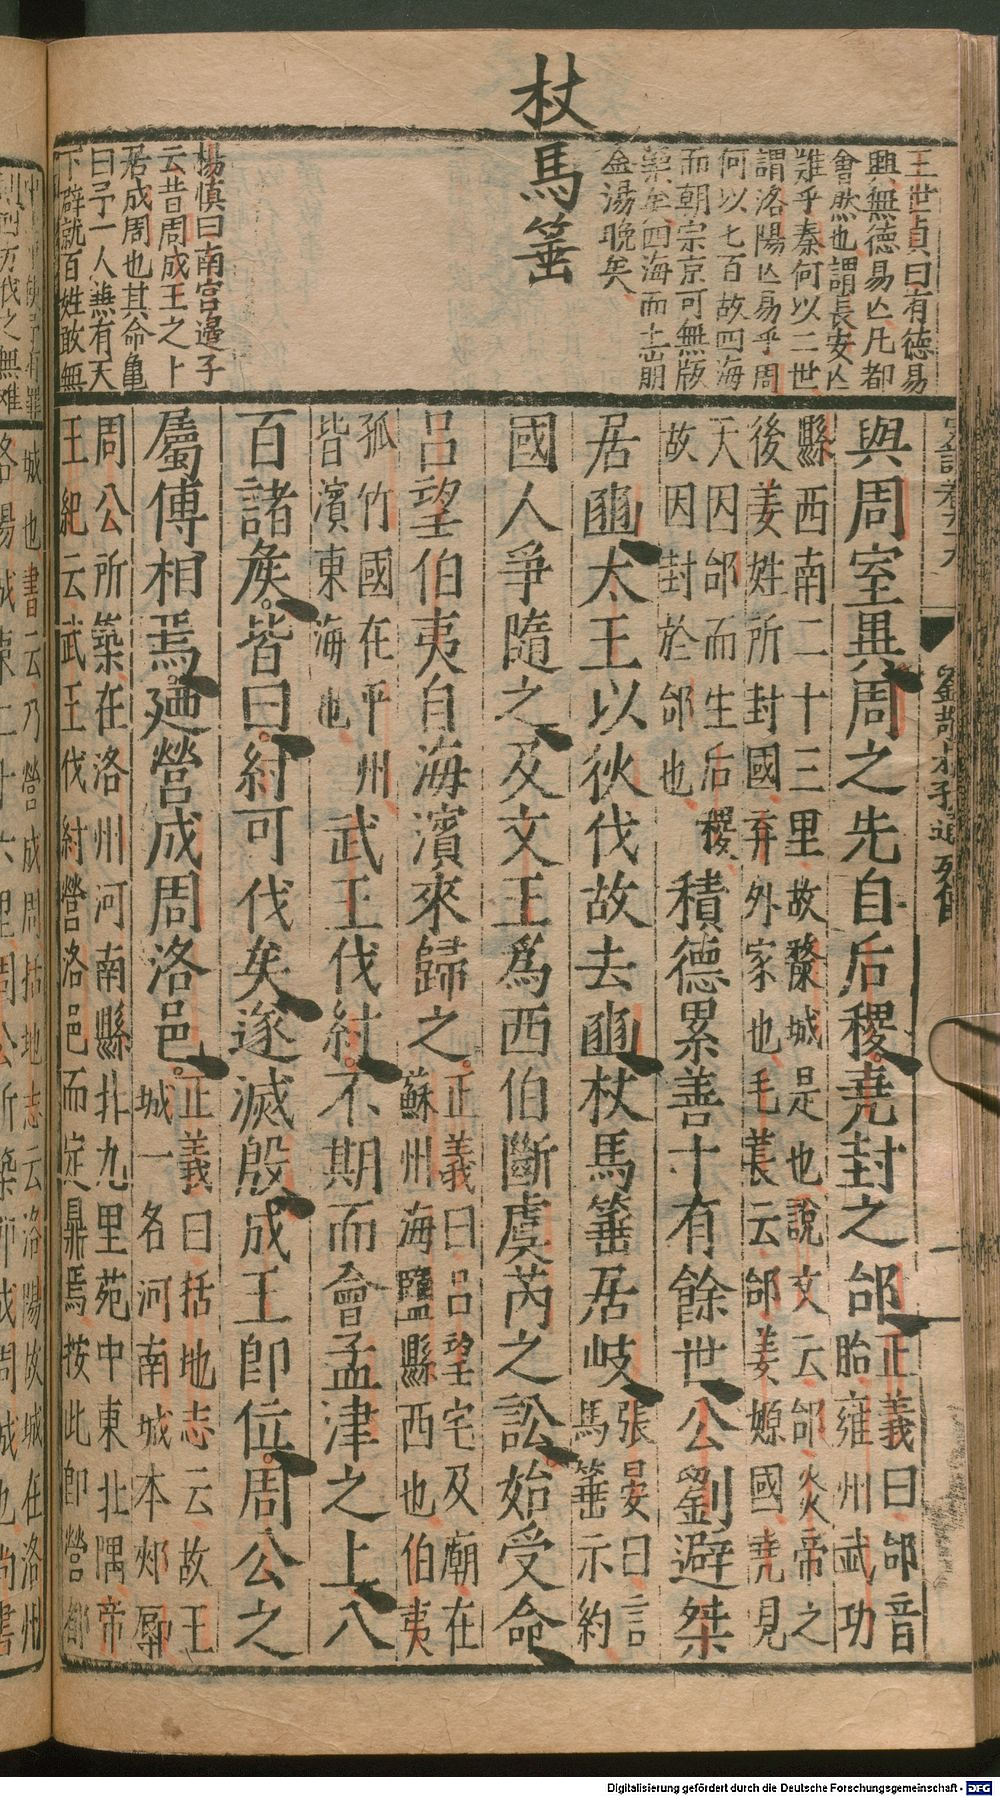 杖馬箠
王世貞曰有德易
興無德易亾凡都
會然也謂長安亾
難乎秦何以二世
謂洛陽亾易乎周
何以七百故四海
而朝宗京可無版
築也四海而土崩
金湯晚矣
楊慎曰南宮邊子
云昔周成王之卜
居成周也其命龜
曰予一人兼有天
下辟就百姓敢無
與周室異周之先自后稷堯封之邰
正義曰邰音
胎雍州武功
縣西南二十三里故斄城是也說文云邰炎帝之
後姜姓所封國弃外家也毛萇云邰姜嫄國堯見
天因邰而生后稷
故因封於邰也
積德累善十有餘世公劉避桀
居豳太王以狄伐故去豳杖馬箠居岐
張晏曰言
馬箠示約
國人爭隨之及文王爲西伯斷虞芮之訟始受命
呂望伯夷自海濱來歸之
正義曰呂望宅及廟在
蘇州海鹽縣西也伯夷
孤竹國在平州
皆濱東海也
武王伐紂不期而會孟津之上八
百諸矦皆曰紂可伐矣遂滅殷成王即位周公之
屬傅相焉廼營成周洛邑
正義曰括地志云故王
城一名河南城本郟鄏
周公所築在洛州河南縣北九里苑中東北隅帝
王紀云武王伐紂營洛邑而定鼎焉按此卽營都
城也書云乃營成周括地志云洛陽故城在洛州
洛陽城東二十六里周公所築卽成周城也尚書
Digitalisierung gefördert durch die Deutsche Forschungsgemeinschaft - DFG